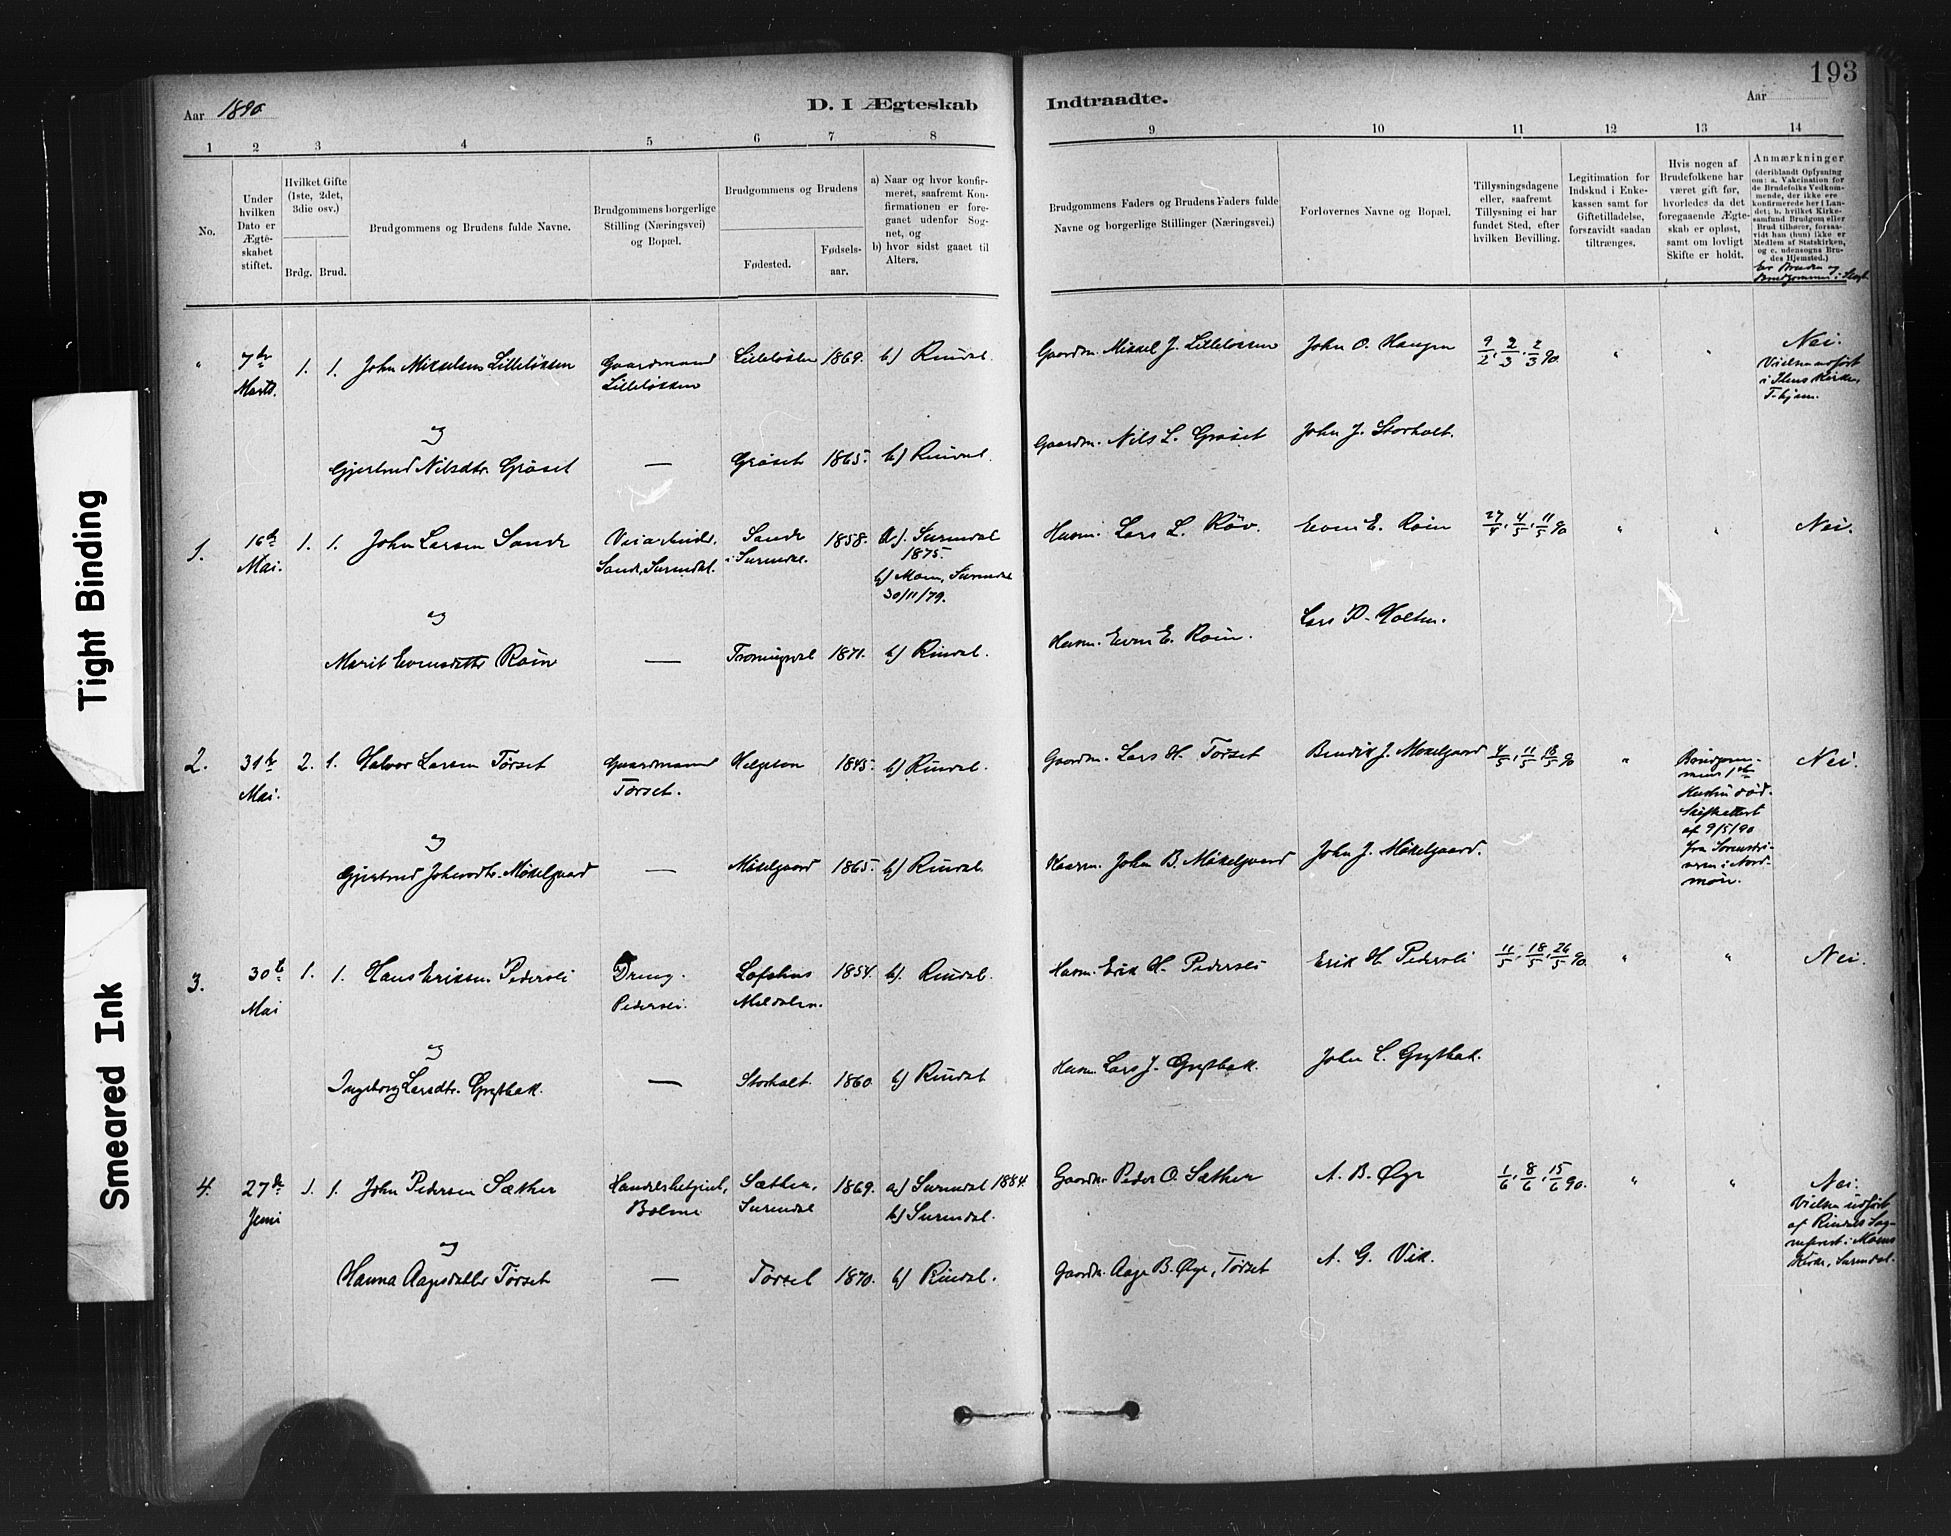 193
Aar 1890
D. I Ægteskab Indtraadte.
Aar
1 2 3 4 5 6 7 8 9 10 11 12 13 14
No.
Under hvilken Dato er Ægteskabet stiftet.
Hvilket Gifte (1ste, 2det, 3die osv.)
Brdg. Brud.
Brudgommens og Brudens fulde Navne.
Brudgommens borgerlige Stilling (Næringsvei) og Bopæl.
Brudgommens og Brudens
Fødested.
Fødselsaar.
a) Naar og hvor konfirmeret, saafremt Konfirmationen er foregaaet udenfor Sognet, og
b) hvor sidst gaaet til Alters.
Brudgommens Faders og Brudens Faders fulde Navne og borgerlige Stillinger (Næringsvei.)
Forlovernes Navne og Bopæl.
Tillysningsdagene eller, saafremt Tillysning ei har fundet Sted, efter hvilken Bevilling.
Legitimation for Indskud i Enkekassen samt for Giftetilladelse, forsaavidt saadan tiltrænges.
Hvis nogen af Brudefolkene har været gift før, hvorledes da det foregaaende Ægteskab er opløst, samt om lovligt Skifte er holdt.
Anmærkninger (deriblandt Opfysning om: a. Vakcination for de Brudefolks Vedkommende, der ikke ere konfirmerede her i Landet; b. hvilket Kirkesamfund Brudgom eller Brud tilhører, forsaavidt han (hun) ikke er Medlem af Statskirken, og c. udensogns Brudes Hjemsted.)
Er Bruden og Brudgommen i Slægt.
" 7de Marts. 1. 1. John Mikkelsen Lilleløkken Gaardmand Lilleløkken Lilleløkken 1869. b) Rindal. Gaardm. Mikkel J. Lilleløkken John O. Haugen 9/2, 2/3, 2/3 90 " " Nei.
Vielsen udført i Ilens Kirke, T.hjem.
og
Gjertrud Nilsdtr. Grøset — Grøset 1865. b) Rindal. Gaardm. Nils L. Grøset John J. Storholt.
1. 16de Mai. 1. 1. John Larsen Sande Veiarbeider, Sande, Surendal. Sande i Surendal. 1858. a). Surendal 1875. b) Moen, Surendal 30/11/79. Husm. Lars L. Røv. Even E. Roin 27/4, 4/5, 11/5 90 " " Nei.
og
Marit Evensdatter Roin — 1871. b) Rindal. Husm. Even E. Roin. Lars P. Holten.
2. 31te Mai. 2. 1. Halvor Larsen Torset Gaardmand Torset. Helgeton 1845. b) Rindal. Gaardm. Lars H. Torset Bendik J. Møkelgaard 4/5, 11/5, 18/5 90 " Brudgommens 1ste Hustru død. Skifteattest af 9/5/90 fra Sorenskriveren i Nordmøre. Nei.
og
Gjertrud Johnsdtr. Møkelgaard — Møkelgaard 1865. b) Rindal. Gaardm. John B. Møkelgaard John J. Møkelgaard.
3. 30te Mai 1. 1. Hans Eriksen Pedersli Dreng. Pedersli. Lofshus Meldalen. 1854. b) Rindal. Husm. Erik H. Pedersli Erik H. Pedersli 11/5, 18/5, 26/5 90. " " Nei.
og
Ingeborg Larsdtr. Grytbak. — Storholt. 1860. b) Rindal Husm. Lars J. Grytbak. John L. Grytbak.
4. 27de Juni 1. 1. John Pedersen Sæther Handelsbetjent, Bolme Sæther, Surendal 1869. a) Surendal 1884. b) Surendal. Gaardm. Peder O. Sæther A. B. Øye 1/6, 8/6, 15/6 90. " " Nei.
Vielsen udført af Rindals Sogneprest i Moens Kirke, Surendal.
og
Hanna Aagesdatter Torset — Torset 1870. b) Rindal. Gaardm. Aage B. Øye, Torset A. G. Vik.
Tight Binding
Smeared Ink